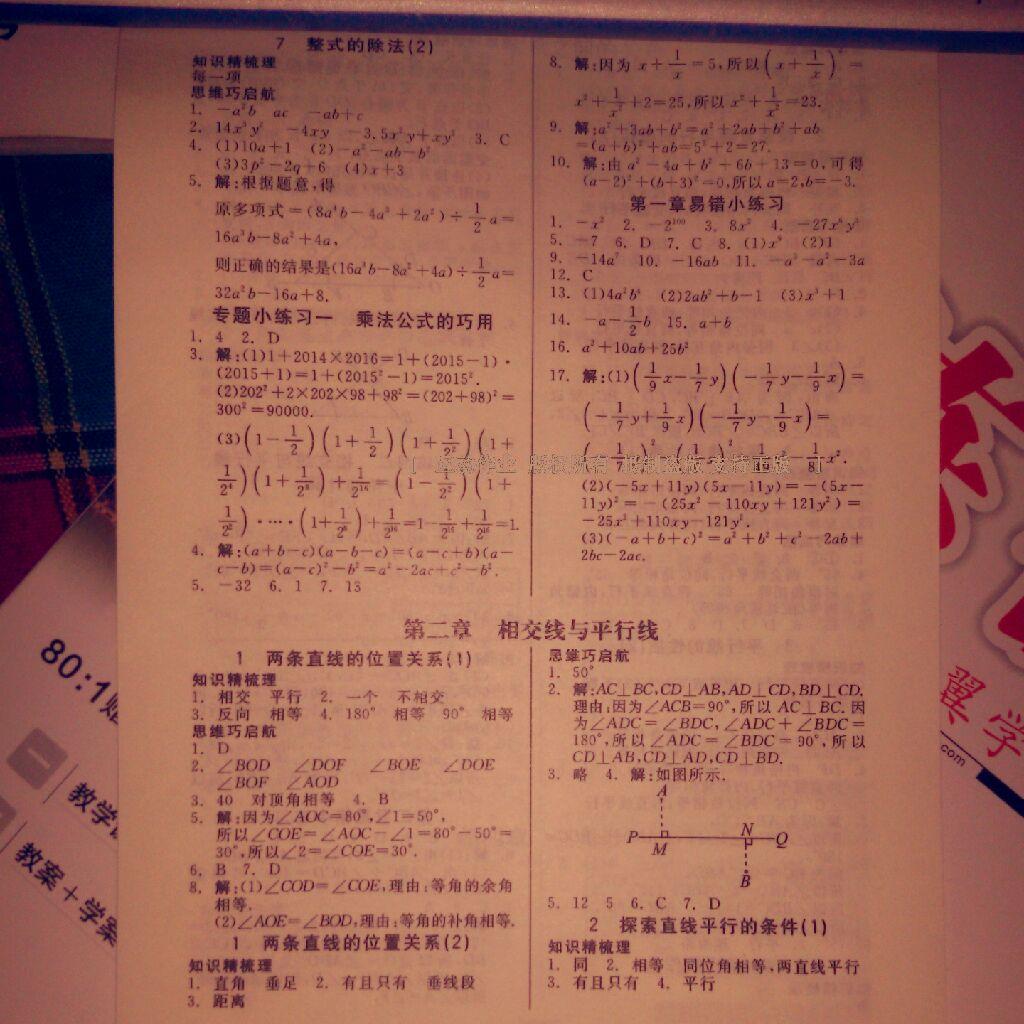 7 整式的除法(2)
知识精梳理
每一项
思维巧启航
1. －a²b ac －ab＋c
2. 14x³y² －4xy －3.5x²y＋xy² 3. C
4. (1)10a＋1 (2)－a²－ab－b²
(3)3p²－2q＋6 (4)x＋3
5. 解:根据题意,得
原多项式＝(8a⁴b－4a³＋2a²)÷1/2a＝
16a³b－8a²＋4a,
则正确的结果是(16a³b－8a²＋4a)÷1/2a＝
32a²b－16a＋8.
专题小练习一 乘法公式的巧用
1. 4 2. D
3. 解:(1)1＋2014×2016＝1＋(2015－1)·
(2015＋1)＝1＋(2015²－1)＝2015².
(2)202²＋2×202×98＋98²＝(202＋98)²＝
300²＝90000.
(3)(1－1/2)(1＋1/2)(1＋1/2²)(1＋
1/2⁴)(1＋1/2⁸)＋1/2¹⁶＝(1－1/2²)(1＋
1/2²)·····(1＋1/2⁸)＋1/2¹⁶＝1－1/2¹⁶＋1/2¹⁶＝1.
4. 解:(a＋b－c)(a－b－c)＝(a－c＋b)(a－
c－b)＝(a－c)²－b²＝a²－2ac＋c²－b².
5. －32 6. 1 7. 13
8. 解:因为x＋1/x＝5,所以(x＋1/x)²＝
x²＋1/x²＋2＝25,所以x²＋1/x²＝23.
9. 解:a²＋3ab＋b²＝a²＋2ab＋b²＋ab
＝(a＋b)²＋ab＝5²＋2＝27.
10. 解:由a²－4a＋b²＋6b＋13＝0,可得
(a－2)²＋(b＋3)²＝0,所以a＝2,b＝－3.
第一章易错小练习
1. －x² 2. －2¹⁰⁰ 3. 8x² 4. －27x⁶y³
5. －7 6. D 7. C 8. (1)x⁹ (2)1
9. －14a⁷ 10. －16ab 11. －a³－a²－3a
12. C
13. (1)4a²b⁶ (2)2ab²＋b－1 (3)x³＋1
14. －a－1/2b 15. a＋b
16. a²＋10ab＋25b²
17. 解:(1)(1/9x－1/7y)(－1/7y－1/9x)＝
(－1/7y＋1/9x)(－1/7y－1/9x)＝
版权所有
(2)(－5x＋11y)(5x－11y)＝－(5x－
11y)²＝－(25x²－110xy＋121y²)＝
－25x²＋110xy－121y².
(3)(－a＋b＋c)²＝a²＋b²＋c²－2ab＋
2bc－2ac.
第二章 相交线与平行线
1 两条直线的位置关系(1)
知识精梳理
1. 相交 平行 2. 一个 不相交
3. 反向 相等 4. 180° 相等 90° 相等
思维巧启航
1. D
2. ∠BOD ∠DOF ∠BOE ∠DOE
∠BOF ∠AOD
3. 40 对顶角相等 4. B
5. 解:因为∠AOC＝80°,∠1＝50°,
所以∠COE＝∠AOC－∠1＝80°－50°＝
30°,所以∠2＝∠COE＝30°.
6. B 7. D
8. 解:(1)∠COD＝∠COE,理由:等角的余角
相等.
(2)∠AOE＝∠BOD,理由:等角的补角相等.
1 两条直线的位置关系(2)
知识精梳理
1. 直角 垂足 2. 有且只有 垂线段
3. 距离
思维巧启航
1. 50°
2. 解:AC⊥BC,CD⊥AB,AD⊥CD,BD⊥CD.
理由:因为∠ACB＝90°,所以AC⊥BC.因
为∠ADC＝∠BDC,∠ADC＋∠BDC＝
180°,所以∠ADC＝∠BDC＝90°,所以
CD⊥AB,CD⊥AD,CD⊥BD.
3. 略 4. 解:如图所示.
A
P M N Q
B
5. 12 5 6. C 7. D
2 探索直线平行的条件(1)
知识精梳理
1. 同 2. 相等 同位角相等,两直线平行
3. 有且只有 4. 平行
80:1
一
教学
教案＋学案
翼学
com